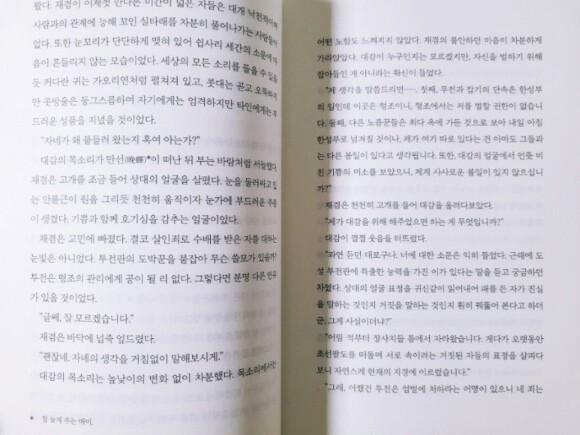 왔다. 재겸이 이제껏 만나온 미간이 넓은 자들은 대개 낙천적이며
사람과의 관계에 능해 꼬인 실타래를 차분히 풀어나가는 사람들이
었다. 또한 눈꼬리가 단단하게 맺혀 있어 쉽사리 세간의 소문에 마
음이 흔들리지 않는 모습이었다. 세상의 모든 소리를 들을 수 있을
듯 커다란 귀는 가오리연처럼 펼쳐져 있고, 콧대는 곧고 오똑하지
만 콧방울은 둥그스름하여 자기에게는 엄격하지만 타인에게는 부
드러운 성품을 지녔을 것이었다.
"자네가 왜 붙들려 왔는지 혹여 아는가?"
대감의 목소리가 만선(晩蟬)*이 떠난 뒤 부는 바람처럼 서늘했다.
재겸은 고개를 조금 들어 상대의 얼굴을 살폈다. 눈을 둘러싸고 있
는 안륜근이 원을 그리듯 천천히 움직이자 눈가에 부드러운 주름
이 생겼다. 기쁨과 함께 호기심을 감추는 얼굴이었다.
재겸은 고민에 빠졌다. 결코 살인죄로 수배를 받은 자를 대하는
눈빛은 아니었다. 투전판의 도박꾼을 붙잡아 무슨 쓸모가 있을까?
투전은 형조의 관리에게 공이 될 리 없다. 그렇다면 분명 다른 연유
가 있을 것이었다.
"글쎄, 잘 모르겠습니다."
재겸은 바닥에 넙죽 엎드렸다.
"괜찮네. 자네의 생각을 거침없이 말해보시게."
대감의 목소리는 높낮이의 변화 없이 차분했다. 목소리에서는
* 철 늦게 우는 매미.
어떤 노함도 느껴지지 않았다. 재겸의 불안하던 마음이 차분하게
가라앉았다. 대감이 누구인지는 모르겠지만, 자신을 벌하기 위해
잡아들인 게 아니라는 확신이 들었다.
"제 생각을 말씀드리면—. 첫째, 투전과 잡기의 단속은 한성부
의 일인데 이곳은 형조이니, 형조에서는 저를 벌할 권한이 없습니
다. 둘째, 다른 노름꾼들은 죄다 옥에 가둔 것으로 보아 내일 아침
한성부로 넘겨질 것이나, 제가 여기 따로 있다는 건 아마도 그들과
는 다른 볼일이 있다고 생각됩니다. 또한, 대감의 얼굴에서 언뜻 비
친 기쁨의 미소를 보았으니, 제게 사사로운 볼일이 있지 않으십니
까?"
재겸은 천천히 고개를 들어 대감을 올려다보았다.
"제가 대감을 위해 해주었으면 하는 게 무엇입니까?"
대감이 껄껄 웃음을 터뜨렸다.
"과연 듣던 대로구나. 너에 대한 소문은 익히 들었다. 근래에 도
성 투전판에 특출한 능력을 가진 이가 있다는 말을 듣고 궁금하던
차였다. 상대의 얼굴 표정을 귀신같이 읽어내어 패를 든 자가 진실
을 말하는 것인지 거짓을 말하는 것인지 훤히 꿰뚫어 본다고 하더
군. 그게 사실이더냐?"
"어릴 적부터 장사치들 틈에서 자라왔습니다. 게다가 오랫동안
조선팔도를 떠돌며 서로 속이려는 거짓된 자들의 표정을 살피다
보니 자연스레 현재의 지경에 이르렀습니다."
"그래, 어쨌건 투전은 엄벌에 처하라는 어명이 있으니 네 죄는